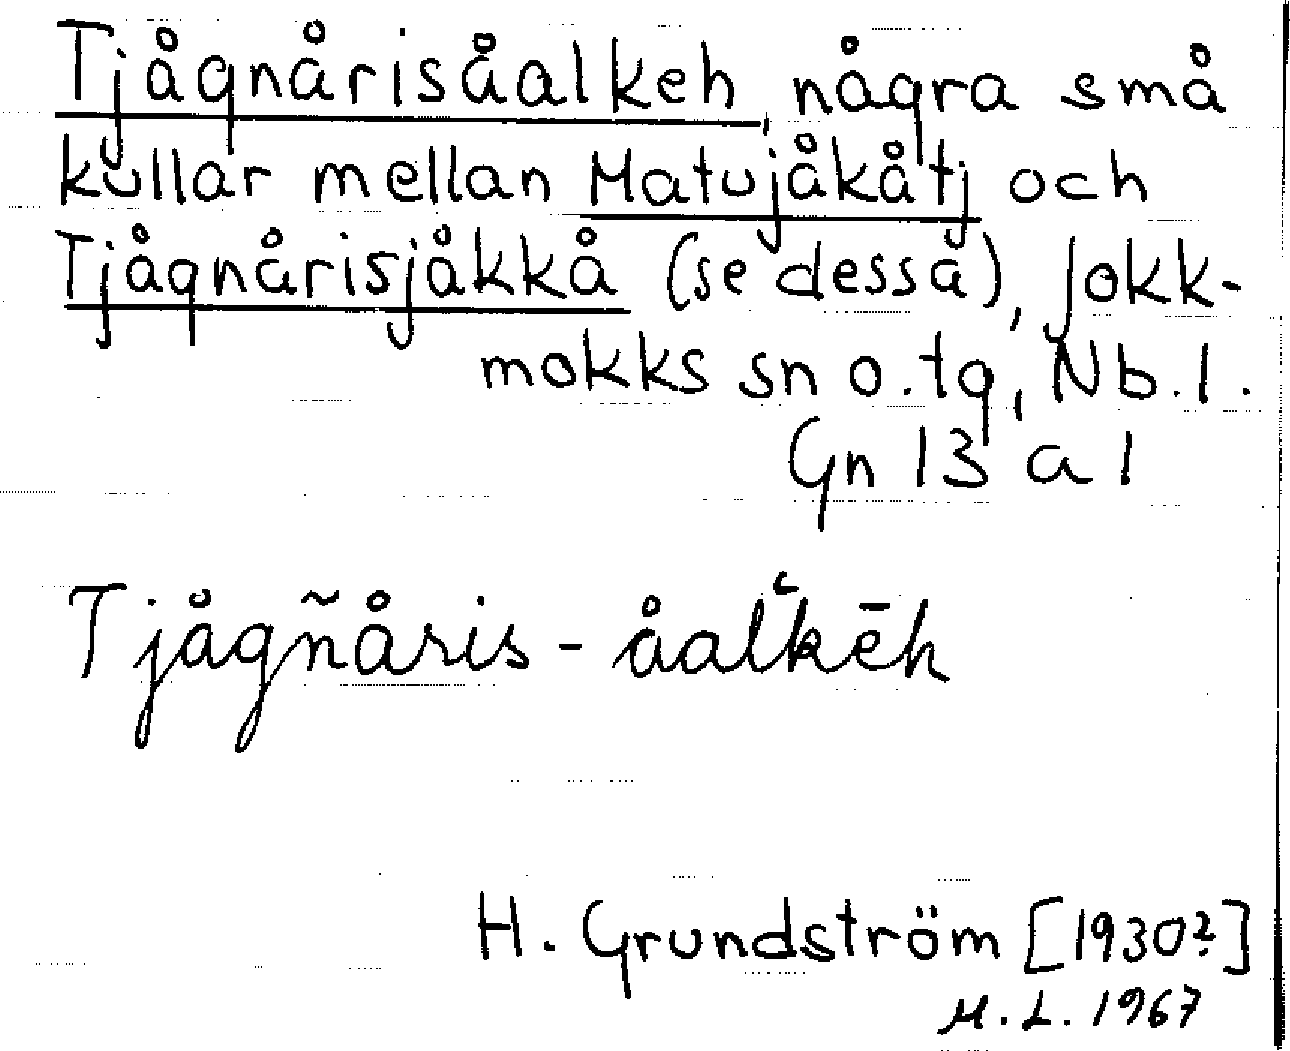 Tjågnårisåalkeh, några små
kullar mellan Matujåkåtj och
Tjågnårisjåkkå (se dessa), Jokk-
mokks sn o. tg, Nb. l.
Gn 13 a 1
Tjågñåris - åalk̔ēh
H. Grundström [1930?]
M. L. 1967